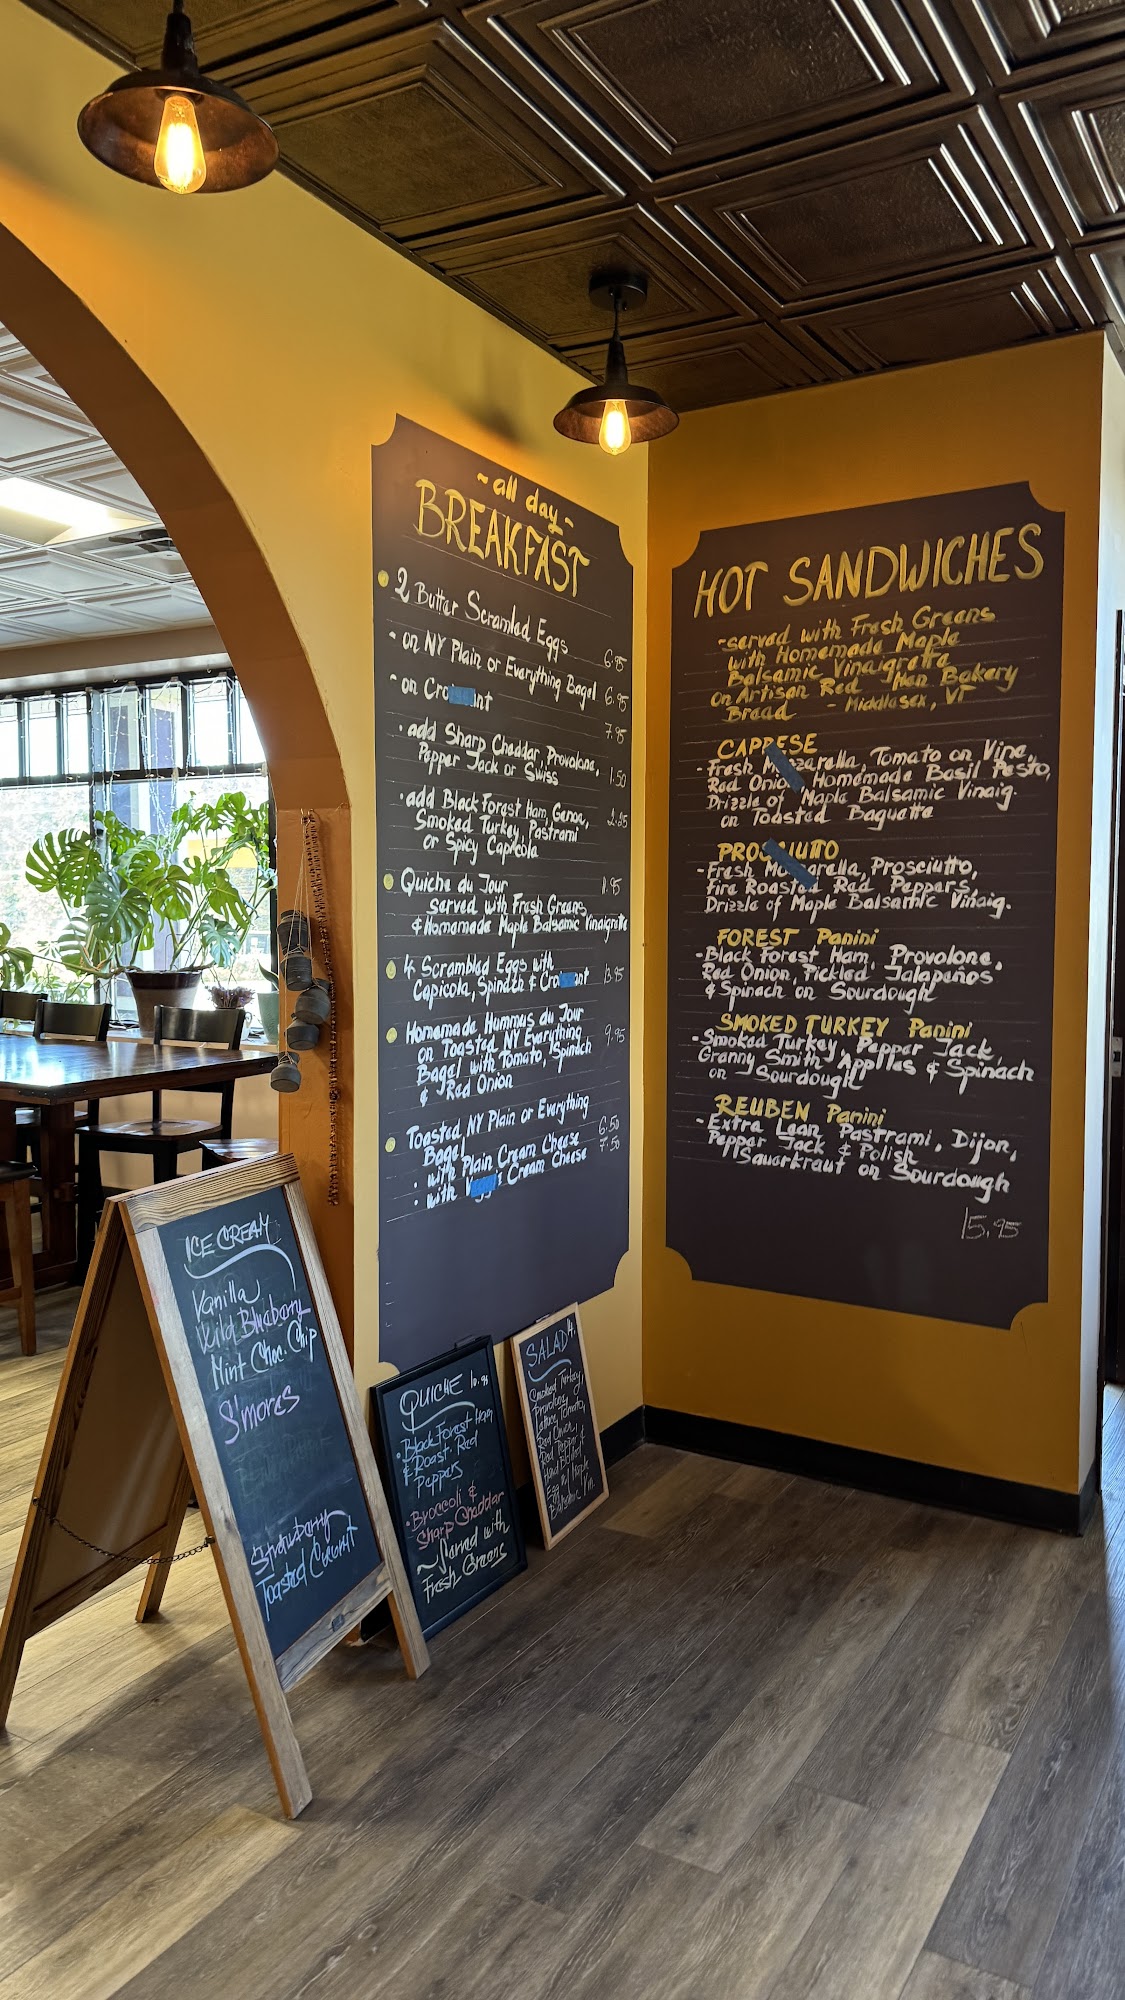 ~all day~
BREAKFAST
2 Butter Scrambled Eggs 6.95
- on NY Plain or Everything Bagel 6.95
- on Cro nt 7.95
• add Sharp Cheddar, Provolone,
Pepper Jack or Swiss 1.50
• add Black Forest Ham, Genoa, 2.25
Smoked Turkey, Pastrami
or Spicy Capicola
Quiche du Jour
served with Fresh Greens
& Homemade Maple Balsamic Vinaigrette
4 Scrambled Eggs with
Capicola, Spinach & Cro nt 13.95
Homemade Hummus du Jour
on Toasted NY Everything 9.95
Bagel with Tomato, Spinach
& Red Onion
Toasted NY Plain or Everything
Bagel 6.50
• with Plain Cream Cheese 7.50
• with Cream Cheese
HOT SANDWICHES
-served with Fresh Greens
with Homemade Maple
Balsamic Vinaigrette
on Artisan Red Hen Bakery
Bread - Middlesex, VT
CAPRESE
- Fresh Mozzarella, Tomato on Vine,
Red Onion, Homemade Basil Pesto,
Drizzle of Maple Balsamic Vinaig.
on Toasted Baguette
PROSCIUTTO
- Fresh Mozzarella, Prosciutto,
Fire Roasted Red Peppers,
Drizzle of Maple Balsamic Vinaig.
FOREST Panini
- Black Forest Ham, Provolone,
Red Onion, Pickled Jalapeños
& Spinach on Sourdough
SMOKED TURKEY Panini
- Smoked Turkey, Pepper Jack,
Granny Smith Applles & Spinach
on Sourdough
REUBEN Panini
- Extra Lean Pastrami, Dijon,
Pepper Jack & Polish
Sauerkraut on Sourdough
15.95
ICE CREAM
Vanilla
Wild Blueberry
Mint Choc. Chip
S'mores
Strawberry
Toasted Coconut
QUICHE
• Black Forest Ham
& Roast. Red
Peppers
• Broccoli &
Sharp Cheddar
~ Served with
Fresh Greens
SALAD
Smoked Turkey,
Provolone,
Lettuce, Tomato,
Red Onion,
Red Pepper &
Hard Boiled
Egg w/ Maple
Balsamic Vin.